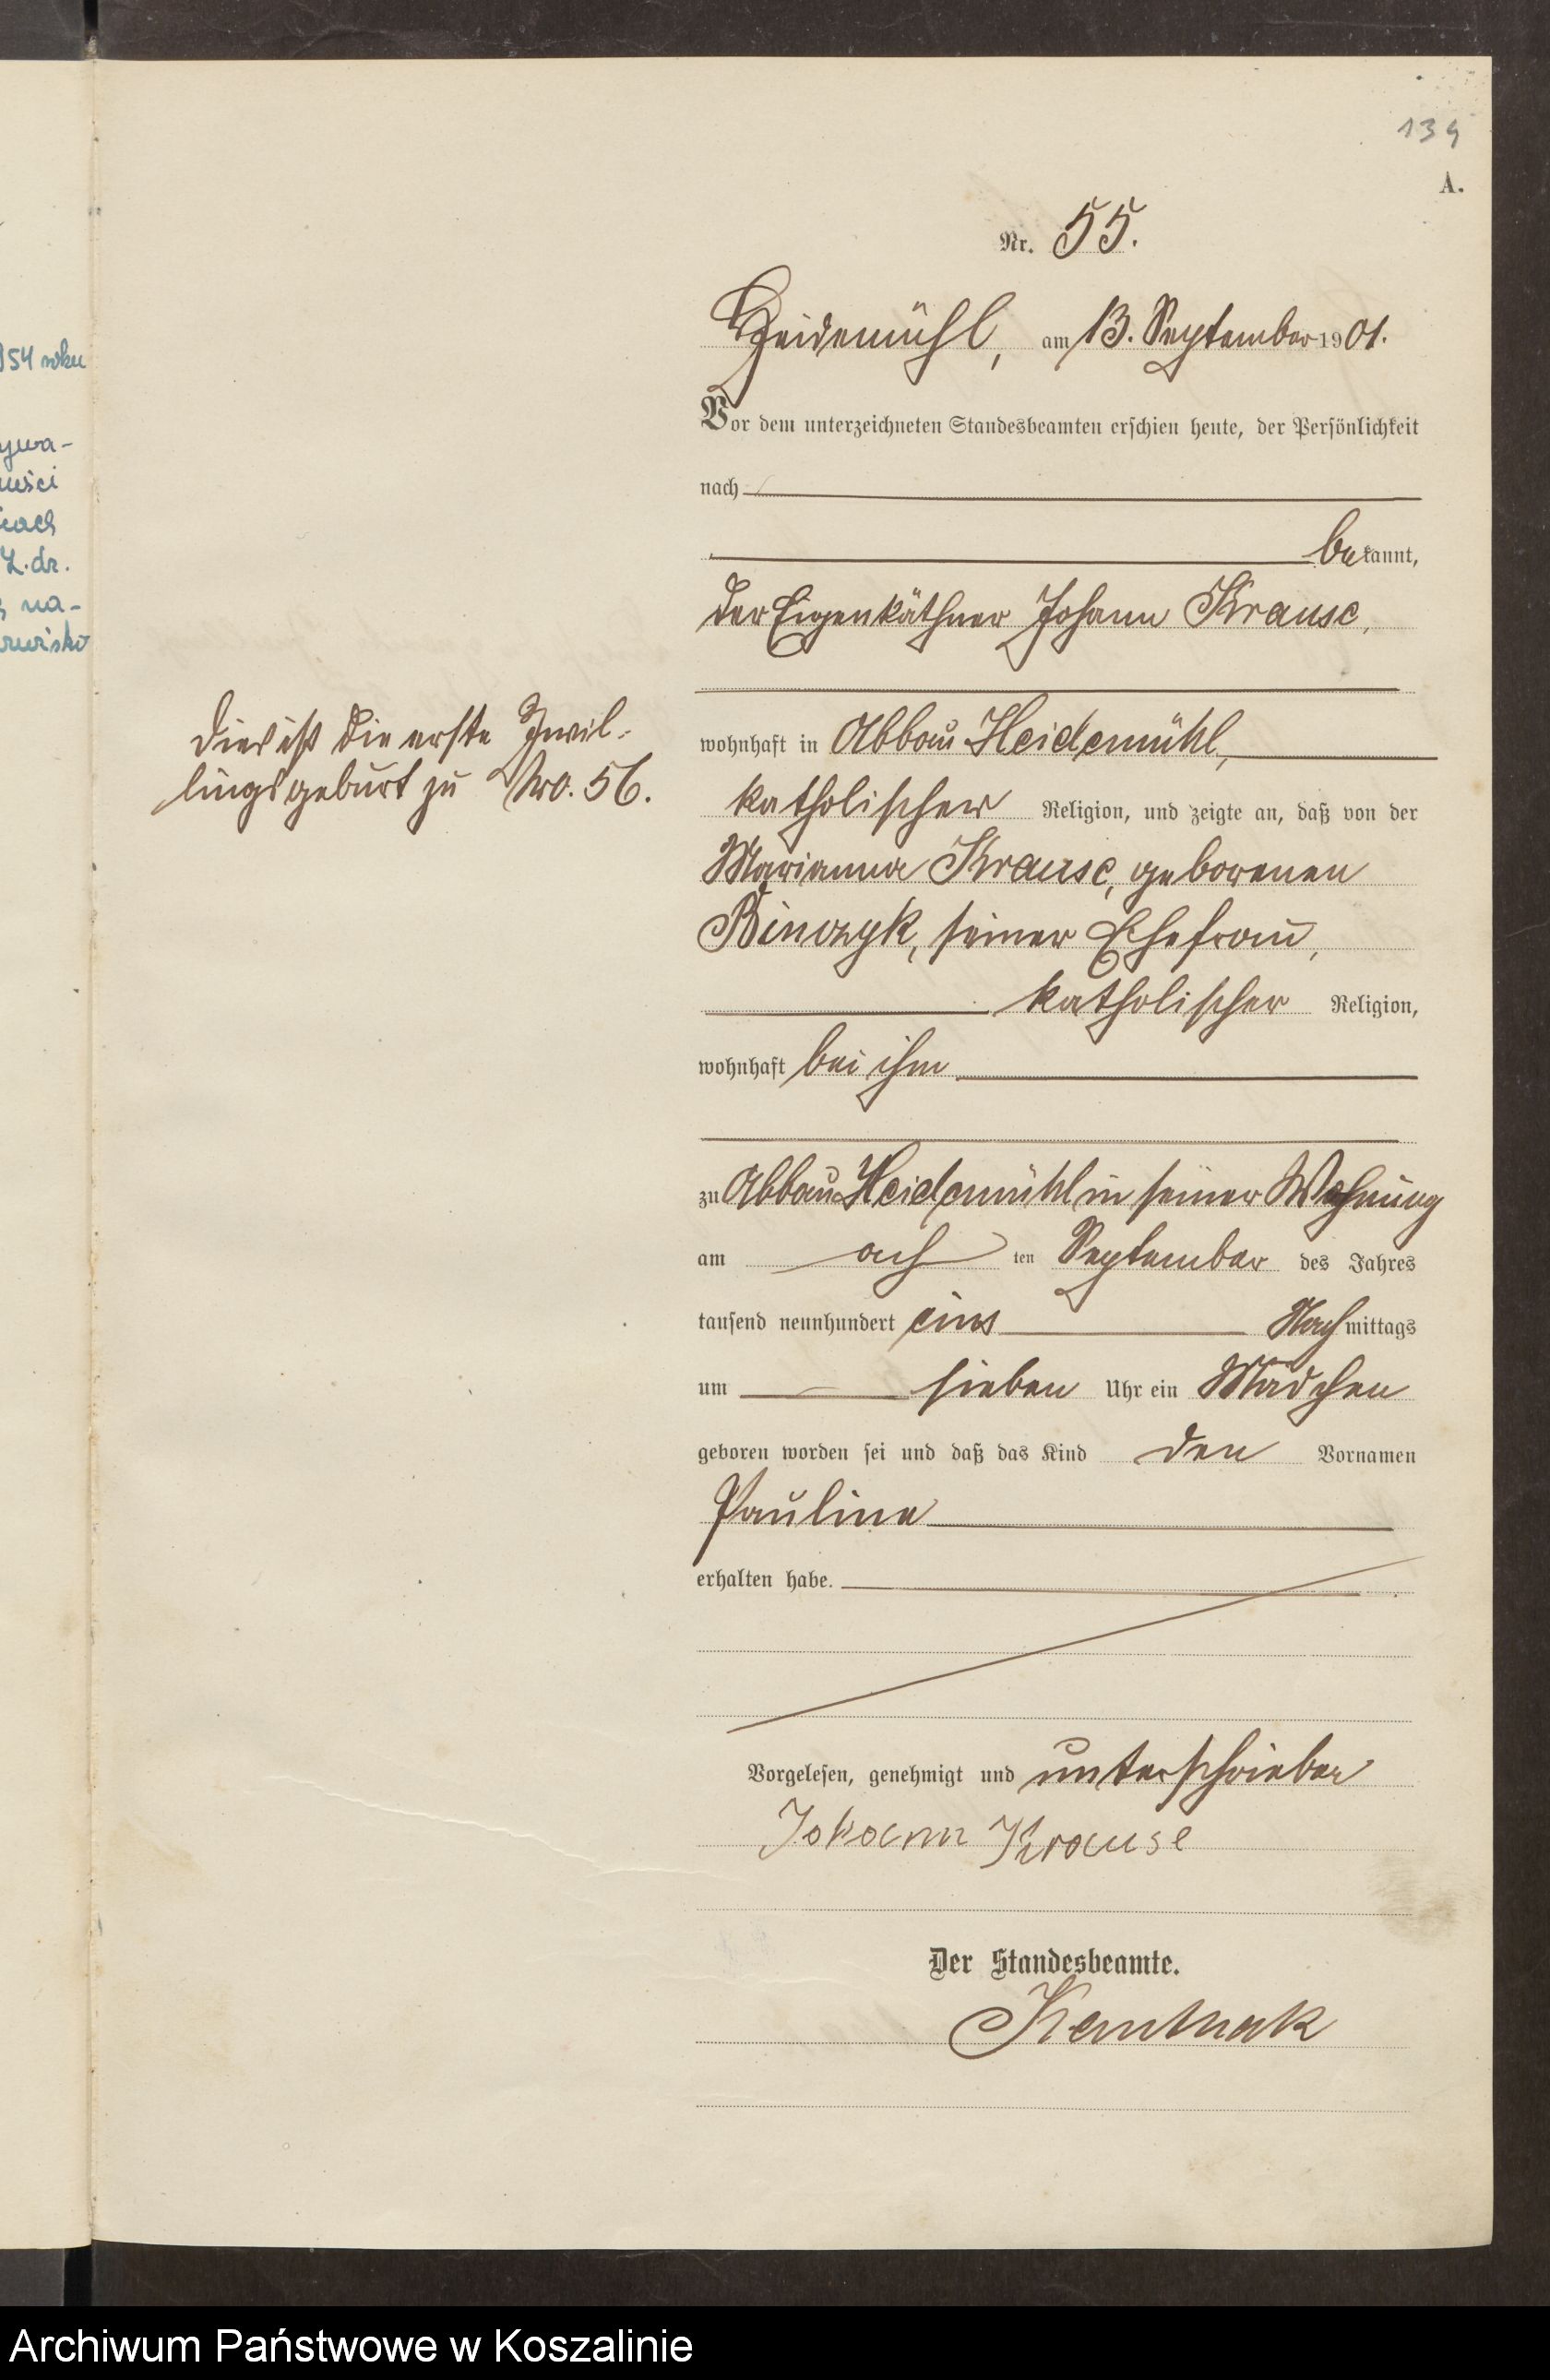 954 roku
139
A.
Nr. 55.
Heidemühl, am 13. September 1901.
Vor dem unterzeichneten Standesbeamten erschien heute, der Persönlichkeit
nach
bekannt,
der Eigenkäthner Johann Krause,
Dies ist die erste Zwil-
lingsgeburt zu Nro. 56.
wohnhaft in Abbau Heidemühl,
katholischer Religion, und zeigte an, daß von der
Marianna Krause, geborenen
Binczyk, seiner Ehefrau,
katholischer Religion,
wohnhaft bei ihm
zu Abbau Heidemühl in seiner Wohnung
am ach ten September des Jahres
tausend neunhundert eins Nachmittags
um sieben Uhr ein Mädchen
geboren worden sei und daß das Kind den Vornamen
Pauline
erhalten habe.
Vorgelesen, genehmigt und unterschrieben
Johann Krause
Der Standesbeamte.
Archiwum Państwowe w Koszalinie